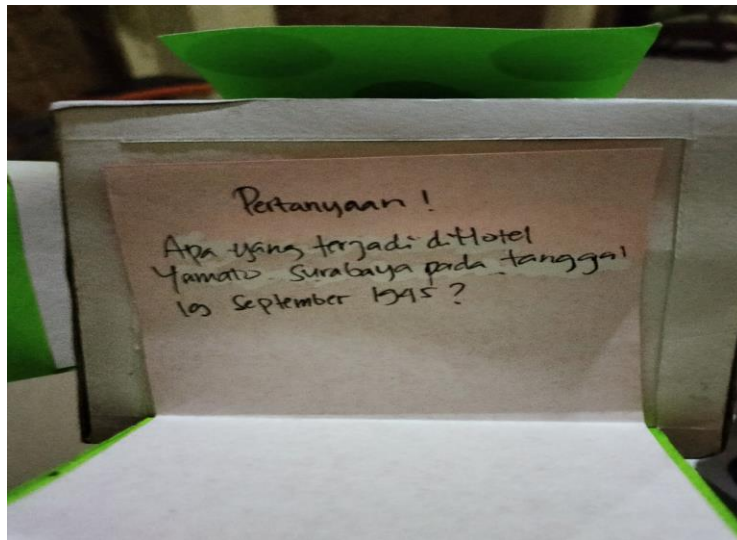 Pertanyaan !
Apa yang terjadi di Hotel
Yamato Surabaya pada tanggal
19 September 1945?